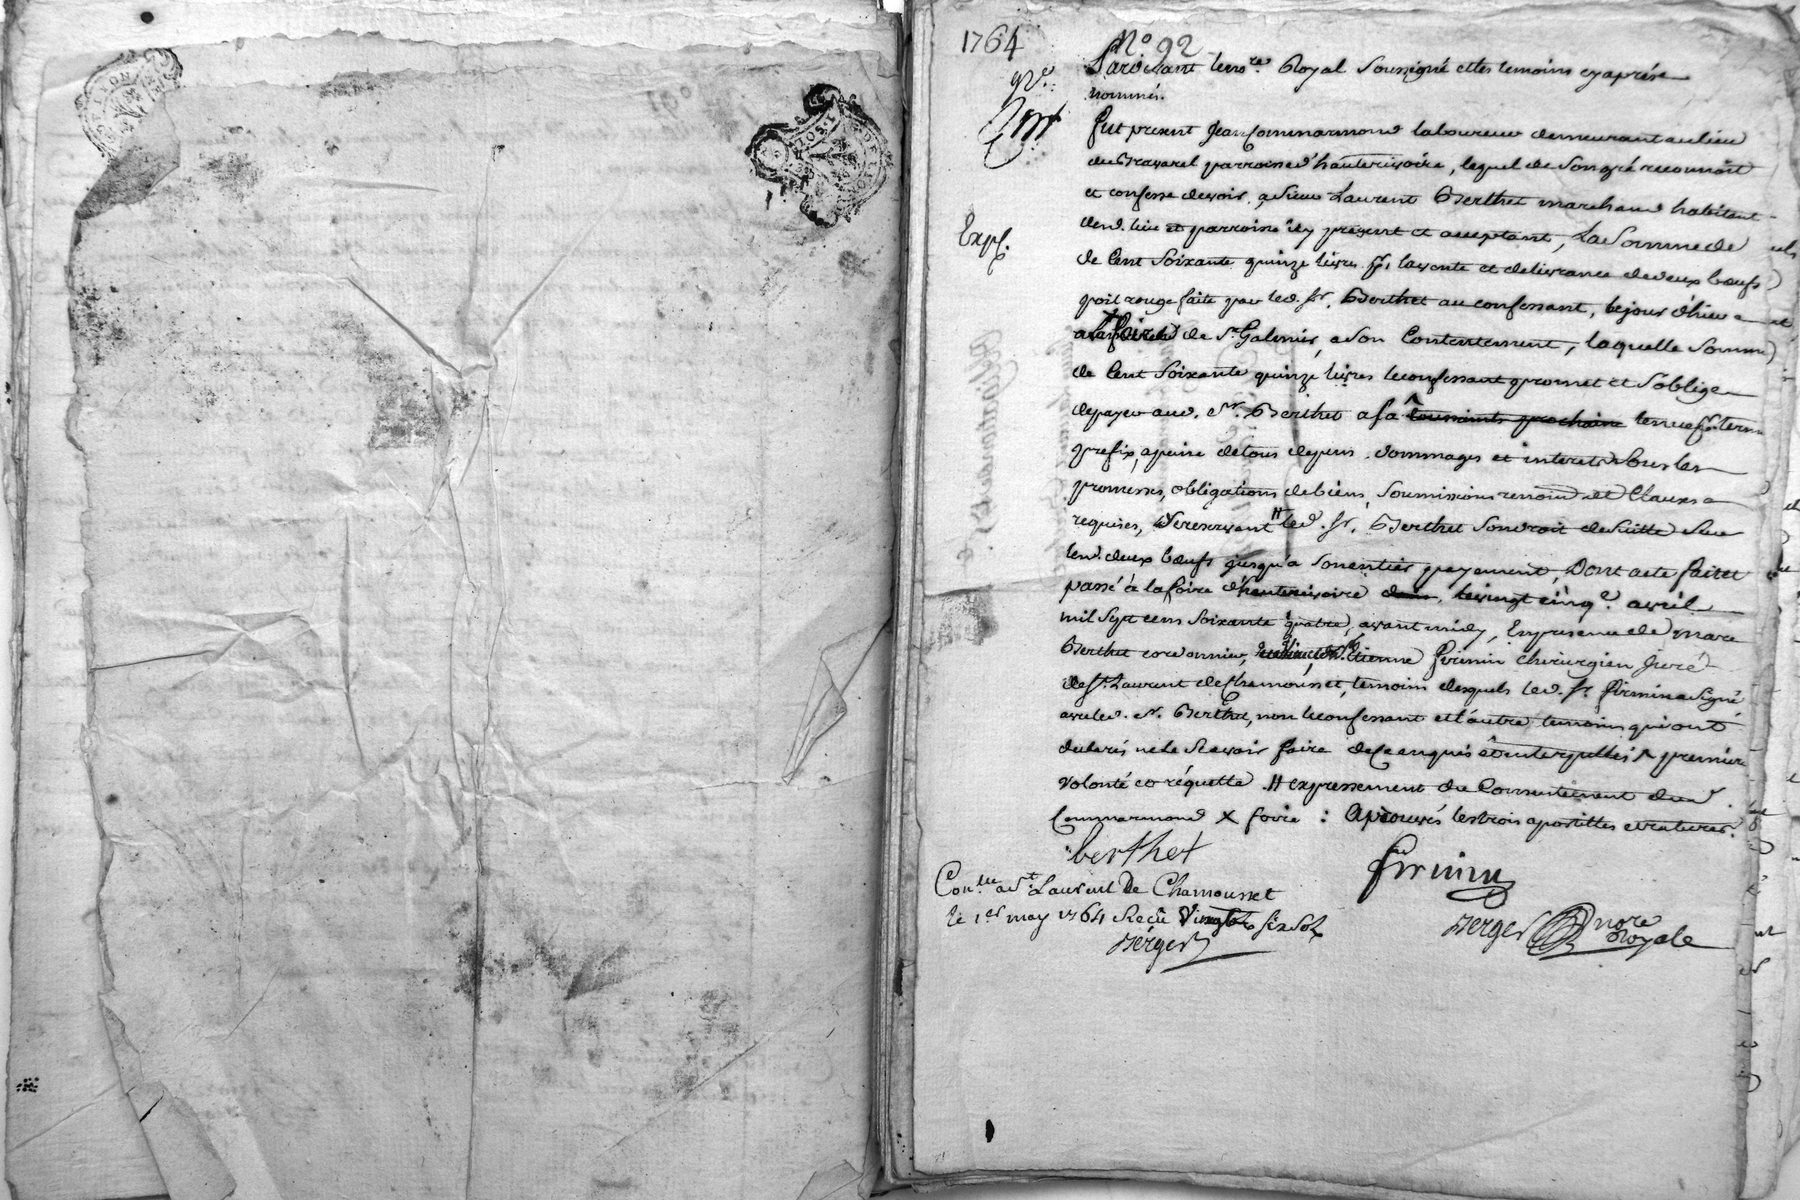 1764
N° 92
Pardevant le no.re Royal soussigné et les temoins cy après
nommés.
gr.e
Exp.
fut present Jean Commarmond laboureur demeurant au lieu
du parroisse d'hauterivoire, lequel de son gré reconnoit
et confesse devoir, a sieur Laurent Berthet marchand habitant
dud. lieu et parroisse icy present et acceptant, La Somme de
de Cent Soixante quinze livres pr. la vente et delivrance de deux bœufs
poil rouge faite par led. Sr. Berthet au confessant, le jour d'hier
a la de St. Galmier, a son Contentement, laquelle Somme
de Cent Soixante quinze livres le confessant promet et s'oblige
de payer aud. Sr. Berthet a la toussaints prochaine terme
prefix, a peine de tous depens, dommages et interets sous les
promesses, obligations de biens, soumissions renon.on et Clauses
requises, Se reservant # led. Sr. Berthet son droit de suitte sur
lesd. deux bœufs jusqu'a son entier payement, Dont acte fait et
passé à la foire d'hauterivoire le vingt cinq.e avril
mil sept cens soixante quatre, avant midy, En presence de marc
Berthet cordonnier, Etienne firmin chirurgien Juré
de St. Laurent de Chamousset, temoins desquels led. Sr. firmin a signé
avec led. Sr. Berthet, non le confessant et l'autre temoin qui ont
declarés ne le scavoir faire de ce enquis et interpellés ^ premiere
volonté et réquette # expressement du Consentement dud.
Commarmond X foire : Aprouvés les trois apostilles et ratures.
berthet
firmin
Con.lle a St. Laurent De Chamousset
le 1er may 1764 Recu Vingt six Sols
Berger
Berger no.re
Royale